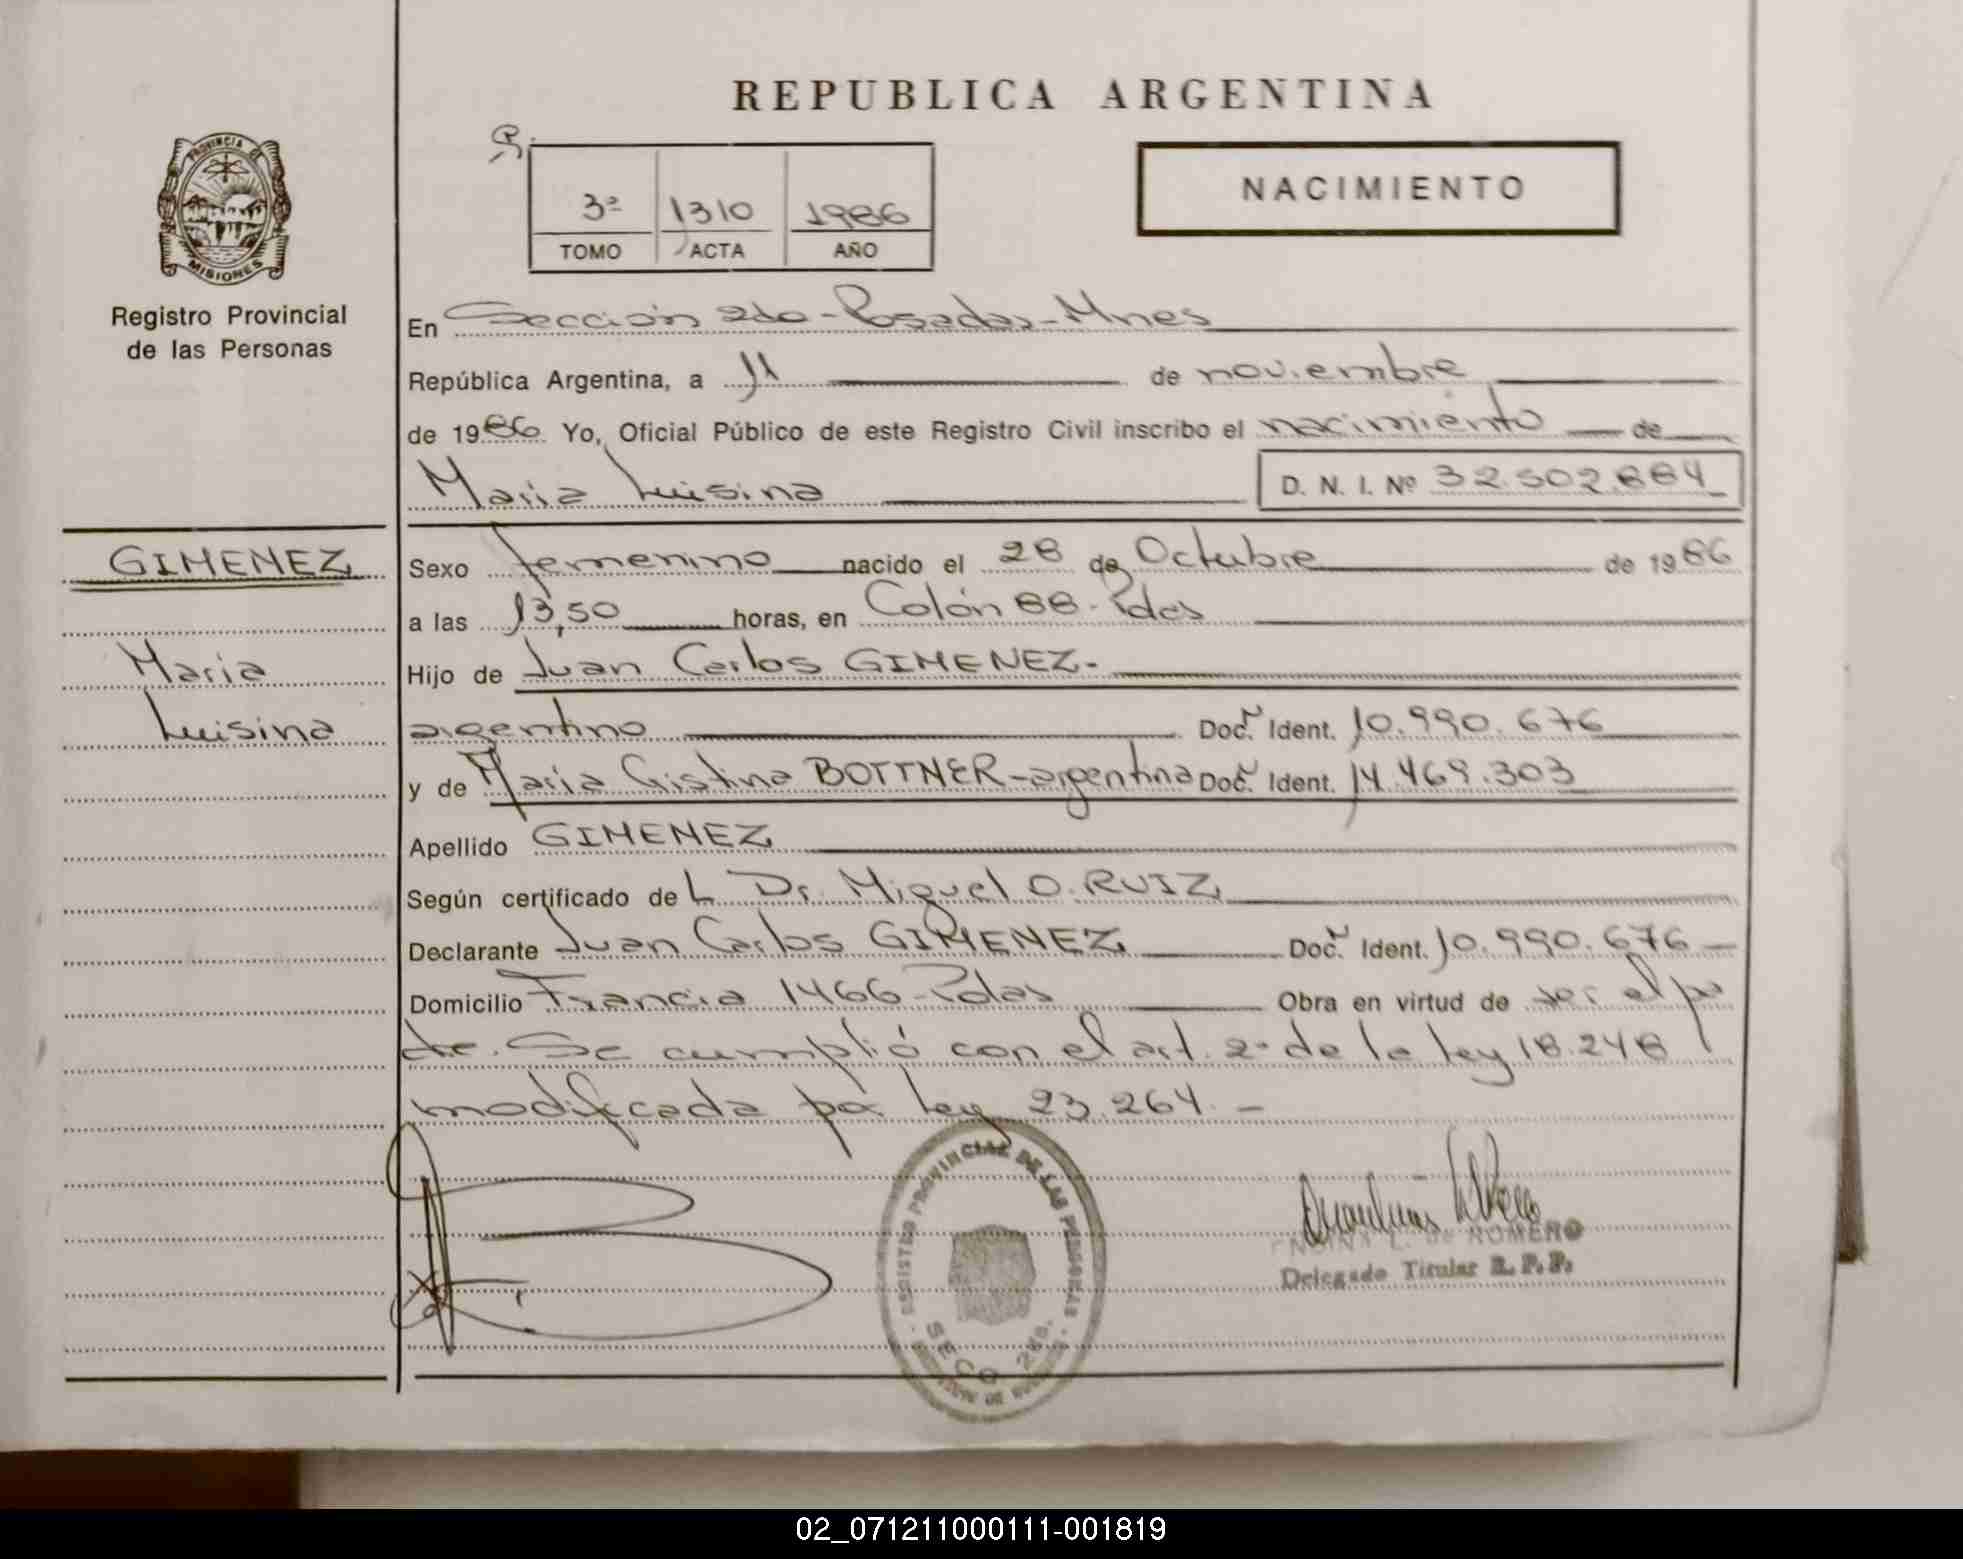 REPUBLICA ARGENTINA
PROVINCIA DE
MISIONES
Registro Provincial
de las Personas
3º 1310 1986
TOMO ACTA AÑO
NACIMIENTO
En Sección 2da - Posadas - Mnes
República Argentina, a 11 de noviembre
de 1986 Yo, Oficial Público de este Registro Civil inscribo el nacimiento de
Maria Luisina D. N. I. Nº 32.502.884
GIMENEZ
Maria
Luisina
Sexo femenino nacido el 28 de Octubre de 1986
a las 13,50 horas, en Colón 88 - Pdas
Hijo de Juan Carlos GIMENEZ.
argentino Doc. Ident. 10.990.676
y de Maria Cristina BOTTNER - argentina Doc. Ident. 14.469.303
Apellido GIMENEZ
Según certificado del Dr. Miguel O. RUIZ
Declarante Juan Carlos GIMENEZ Doc. Ident. 10.990.676 -
Domicilio Francia 1466 - Pdas Obra en virtud de ser el pa
dre. Se cumplió con el art. 2º de la ley 18.248
modificada por ley 23.264. -
REGISTRO PROVINCIAL DE LAS PERSONAS
SECC. 2da.
L. de ROMERO
Delegado Titular R. P. P.
02_071211000111-001819